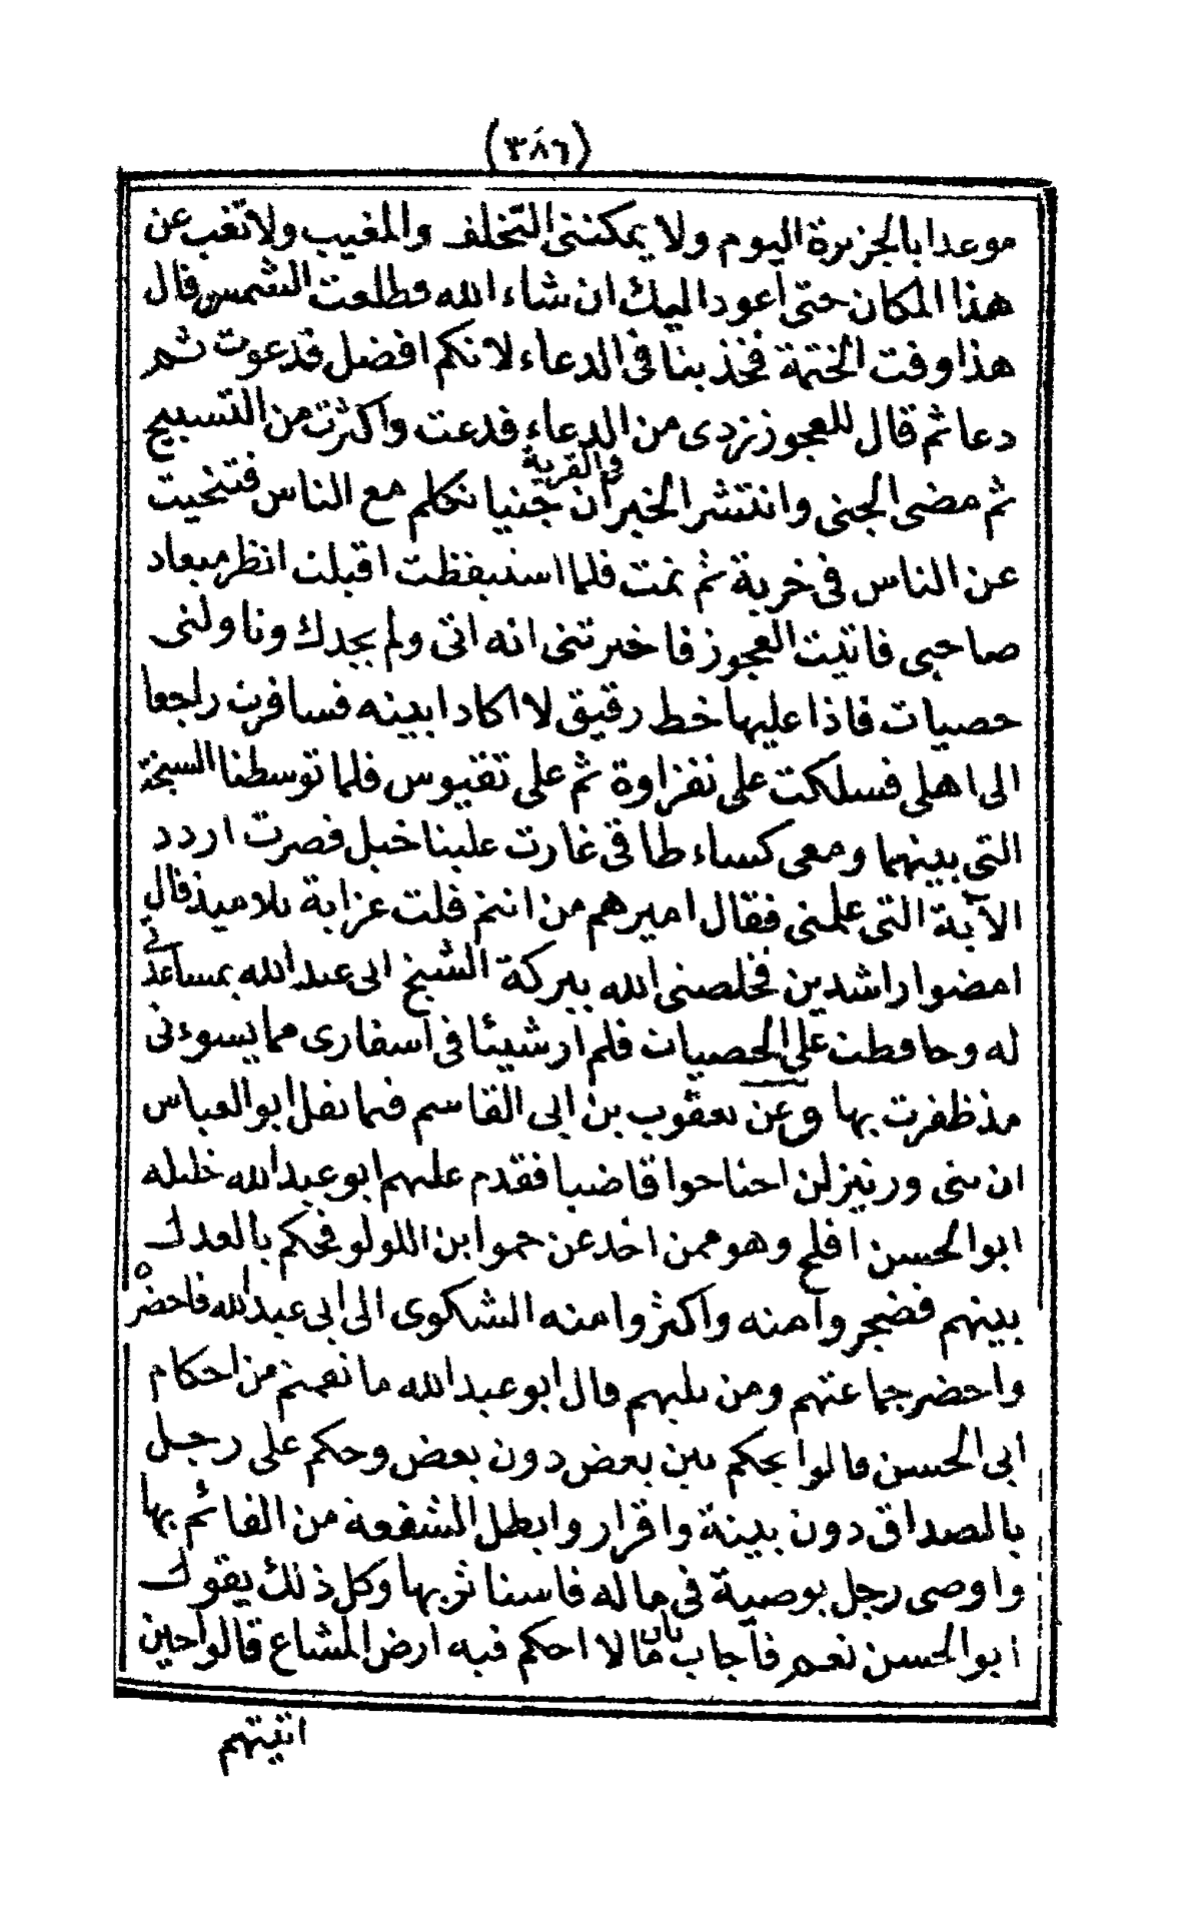 (٣٨٦)
موعدا بالجزيرة اليوم ولا يمكننى التخلف والمغيب ولا تغب عن
هذا المكان حتى اعود اليك ان شاء الله وطلعت الشمس قال
هذا وقت الختمة فخذ بنا فى الدعاء لانكم افضل فدعوت ثم
دعا ثم قال للعجوز زدى من الدعاء فدعت واكثرت من التسبيح
ثم مضى الجنى وانتشر الخبر فى القرية ان جنيا تكلم مع الناس فتنحيت
عن الناس فى خربة ثم نمت فلما استيقظت اقبلت انظر ميعاد
صاحبى فاتيت العجوز فاخبرتنى انه اتى ولم يجدك وناولنى
حصيات فاذا عليها خط رقيق لا اكاد ابينه فسافرت راجعا
الى اهلى فسلكت على نفزاوة ثم على تقيوس فلما توسطنا السبخة
التى بينهما ومعى كساء طاقى غارت علينا خيل فصرت اردد
الآية التى علمنى فقال اميرهم من انتم قلت عزابة تلاميذ قال
امضوا راشدين فخلصنى الله ببركة الشيخ ابى عبد الله بمساعدتى
له وحافظت على الحصيات فلم ار شيئا فى اسفارى مما يسوءنى
مذ ظفرت بها وعن يعقوب بن ابى القاسم فيما نقل ابو العباس
ان بنى ورتيزلن احتاجوا قاضيا فقدم عليهم ابو عبد الله خليله
ابو الحسن افلح وهو ممن اخذ عن حمو ابن اللولو فحكم بالعدل
بينهم فضجروا منه واكثروا منه الشكوى الى ابى عبد الله فاحضره
واحضر جماعتهم ومن يليهم قال ابو عبد الله ما نقمتم من احكام
ابى الحسن قالوا يحكم بين بعض دون بعض وحكم على رجل
بالصداق دون بينة واقرار وابطل الشفعة من القائم بها
واوصى رجل بوصية فى ماله فاستاثر بها وكل ذلك يقول
ابو الحسن نعم فاجاب بان مالا احكم فيه ارض المشاع قالوا حين
اتيتهم